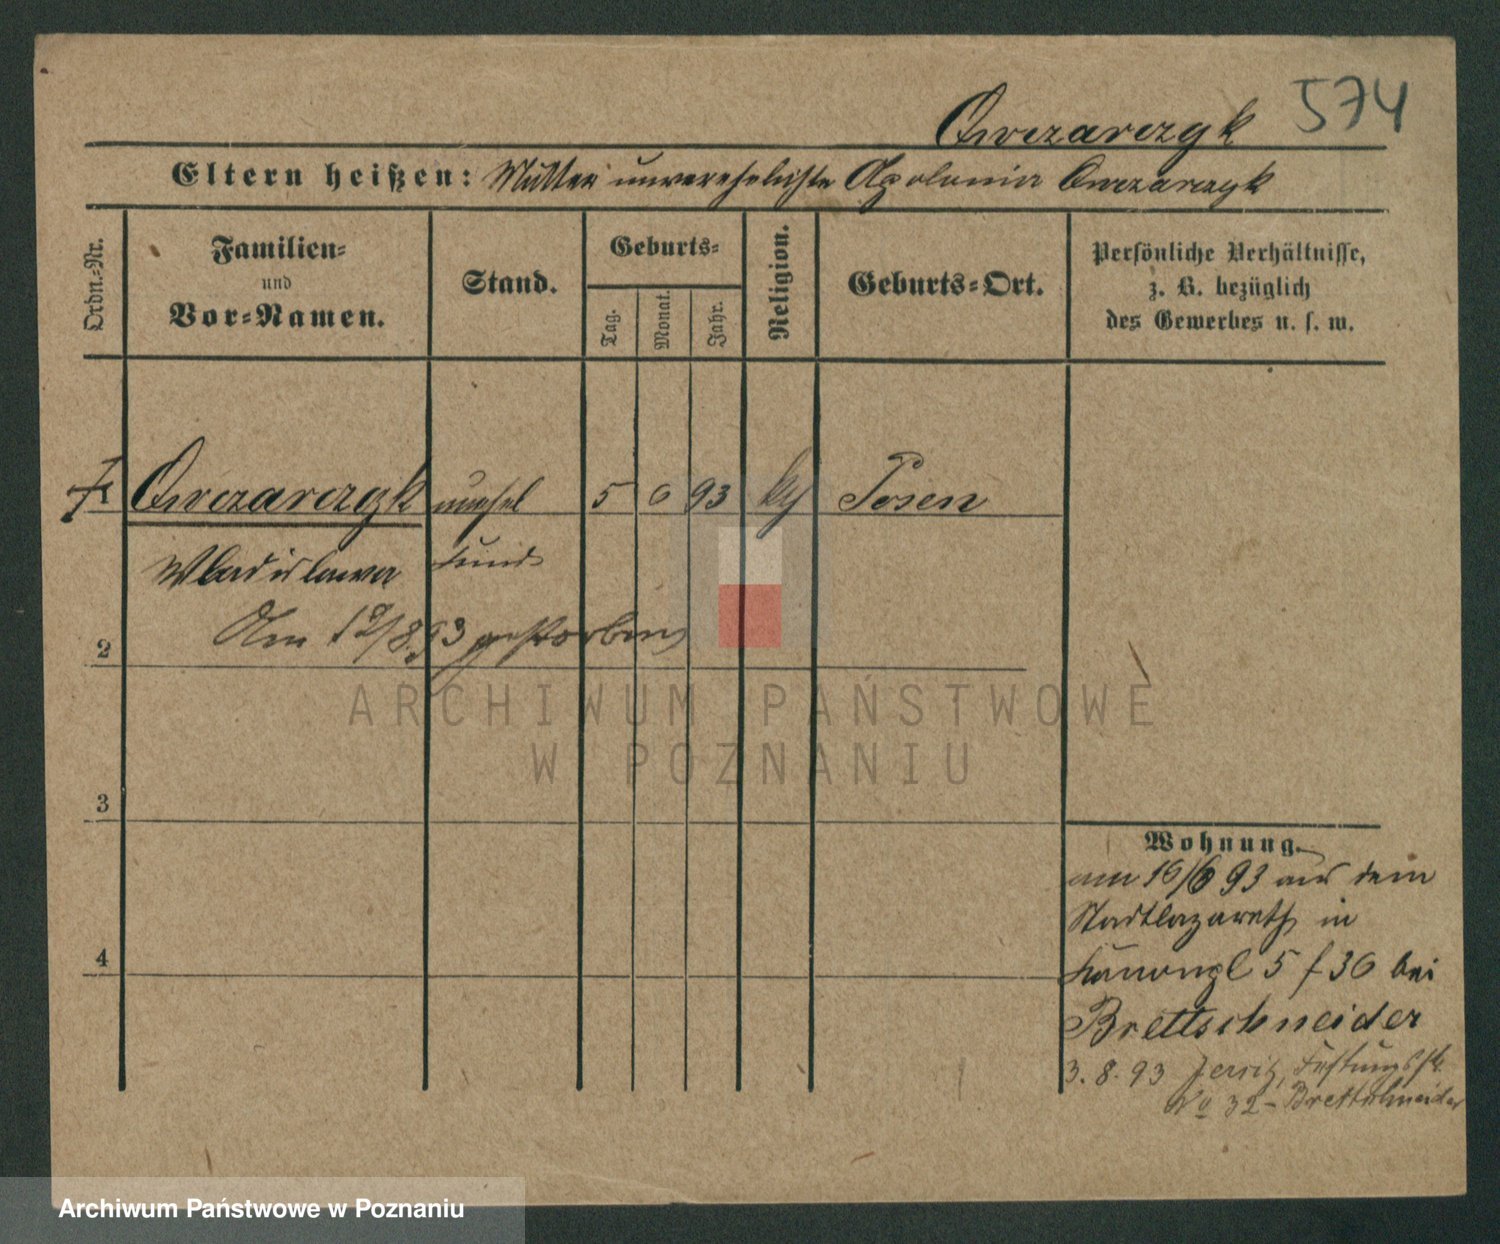 Owczarczyk 574
Eltern heißen: Mutter unverehelichte Apolonia Owczarczyk
Ordn.-Nr.
Familien-
und
Vor-Namen.
Stand.
Geburts-
Tag.
Monat.
Jahr.
Religion.
Geburts-Ort.
Persönliche Verhältnisse,
z. B. bezüglich
des Gewerbes u. s. w.
1 Owczarczyk unehel 5 6 93 kth Posen
Wladislawa Kind
Am 12/8 93 gestorben
2
3
4
Wohnung.
am 16/6 93 aus dem
Stadtlazareth in
Kanonpl 5 f 36 bei
Brettschneider
3. 8. 93 Jersitz, Festungsstr.
No 32 - Brettschneider
ARCHIWUM PAŃSTWOWE
W POZNANIU
Archiwum Państwowe w Poznaniu